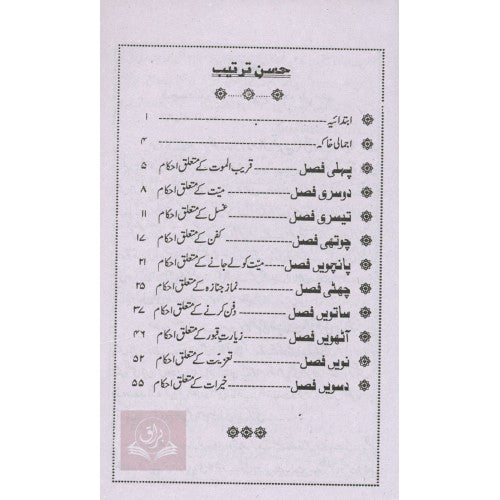 حسن ترتیب
ابتدائیہ ۱
اجمالی خاکہ ۴
پہلی فصل قریب الموت کے متعلق احکام ۵
دوسری فصل میّت کے متعلق احکام ۸
تیسری فصل غسل کے متعلق احکام ۱۱
چوتھی فصل کفن کے متعلق احکام ۱۷
پانچویں فصل میّت کو لے جانے کے متعلق احکام ۲۱
چھٹی فصل نماز جنازہ کے متعلق احکام ۲۵
ساتویں فصل دفن کرنے کے متعلق احکام ۳۷
آٹھویں فصل زیارتِ قبور کے متعلق احکام ۴۶
نویں فصل تعزیت کے متعلق احکام ۵۲
دسویں فصل خیرات کے متعلق احکام ۵۵
براق